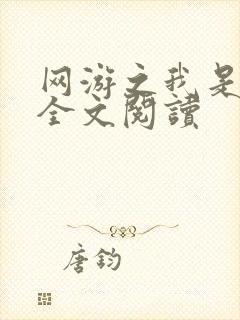 网游之我是
全文閱讀
唐鈞